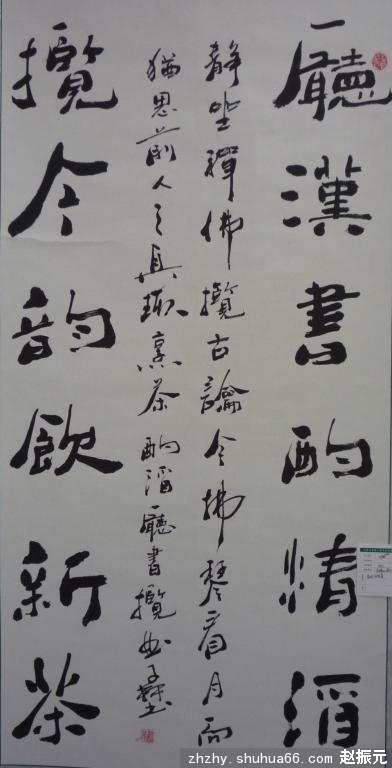 廳漢書酌清酒
静坐禪佛攬古論今拂琴看月而
猶思前人之真趣烹茶酌酒廳書攬
攬今韵飲新茶
zhzhy.shuhua66.com 赵振元